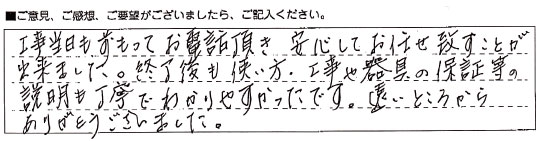 ■ご意見、ご感想、ご要望がございましたら、ご記入ください。
工事当日も前もってお電話頂き 安心してお任せ致すことが
出来ました。終了後も使い方・工事や器具の保証等の
説明も丁寧でわかりやすかったです。遠いところから
ありがとうございました。